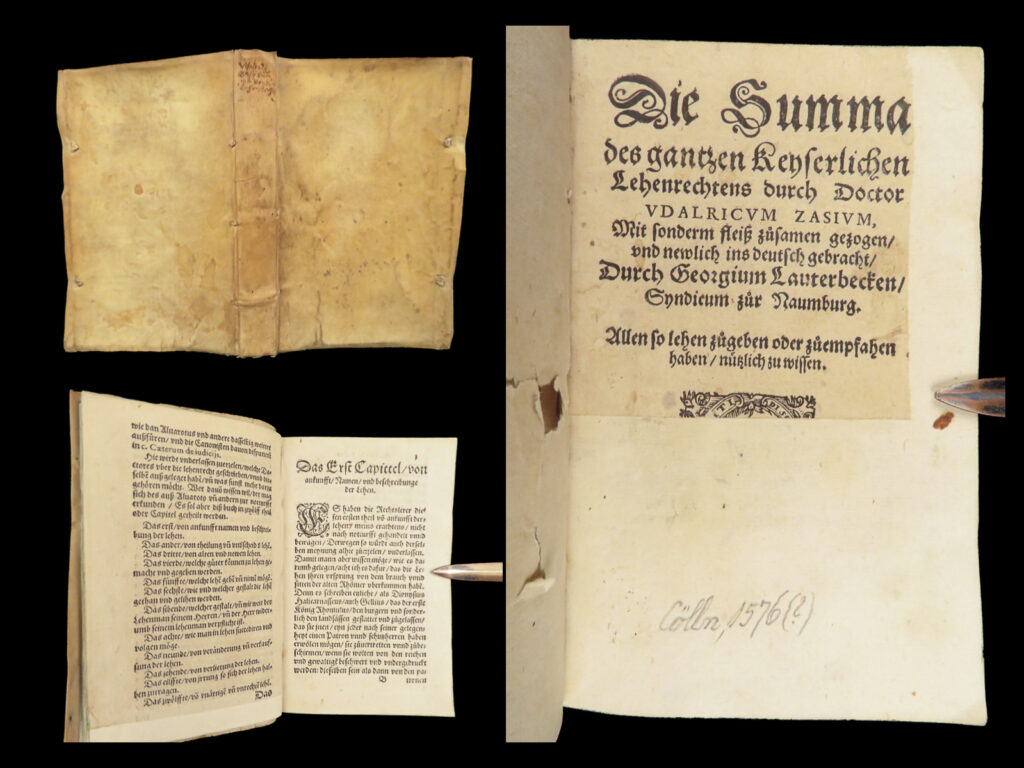 Die Summa
des gantzen Keyserlichen
Lehenrechtens durch Doctor
VDALRICVM ZASIVM,
Mit sonderm fleiß zůsamen gezogen/
vnd newlich ins deutsch gebracht/
Durch Georgium Lauterbecken/
Syndicum zůr Naumburg.
Allen so lehen zůgeben oder zůempfahen
haben / nützlich zu wissen.
Cölln, 1576(?)
wie dan Aluarotus vnd andere dasselbig weiter
außfüren / vnd die Canonisten dauon disputirn
in c. Cæterum de iudicijs.
Hie wirdt vnderlassen zuerzelen / welche Do-
ctores vber die lehenrecht geschrieben / vnd die
selbē auß gelegt habē / vñ was sunst mehr darzu
gehören möcht. Wer dauō wissen wil / der mag
sich des auß Aluaroto vñ andern zur
erkunden / Es sol aber diß buch in zwölff theil
oder Capitel getheilt werden.
Das erst / von ankunfft namen vnd beschrei-
bung der lehen.
Das ander / von theilung vñ vnderscheid d lehē.
Das dritte / von alten vnd newen lehen.
Das vierde / welche güter können zu lehen ge-
macht vnd gegeben werden.
Das fünffte / welche lehē gebē vñ nimē mögē.
Das sechste / wie vnd welcher gestalt die lehē
gethan vnd gelihen werden.
Das sibende / welcher gestalt / vñ wie weit der
Lehenman seinem Herren / vñ der Herr wider-
umb seinem lehenman verpflicht ist.
Das achte / wie man in lehen succediren vnd
volgen möge.
Das neunde / von veränderung vñ verkauf-
fung der lehen.
Das zehende / von verlierung der lehen.
Das eilffte / von jrrung so sich der lehen hal-
ben zutragen.
Das zwölffte / vō vnärtigē vñ vnrechtē lehē.
Das
Das Erst Capittel / von
ankunfft / Namen / vnd beschreibunge
der Lehen.
ES haben die Rechtslerer die-
sen ersten theil vō ankunfft der
lehen / meins erachtens / nicht
nach notturfft gehandelt vnnd
bewagen / Derwegen so würdt auch dersel-
ben meynung alhie zuerzelen / vnderlassen.
Damit mann aber wissen möge / wie es da-
rumb gelegen / acht ich es dafür / das die Le-
hen jhren vrsprung von dem brauch vnnd
sitten der alten Rhömer vberkummen habē.
Denn es schreiben etliche / als Dionysius
Halicarnasseus / auch Gellius / das der erste
König Rhomulus / den bürgern vnd sonder-
lich den Landsässen gestattet vnd zugelassen /
das sie jnen / eyn jeder nach seiner gelegen-
heyt einen Patron vnnd schutzherren haben
erwölen mögen / sie zuuertretten vnnd zube-
schirmen / wenn sie wolten von den reichen
vnd gewaltigē beschwert vnd vndergedruckt
werden: dieselben sein als dann von den pa-
B tronen